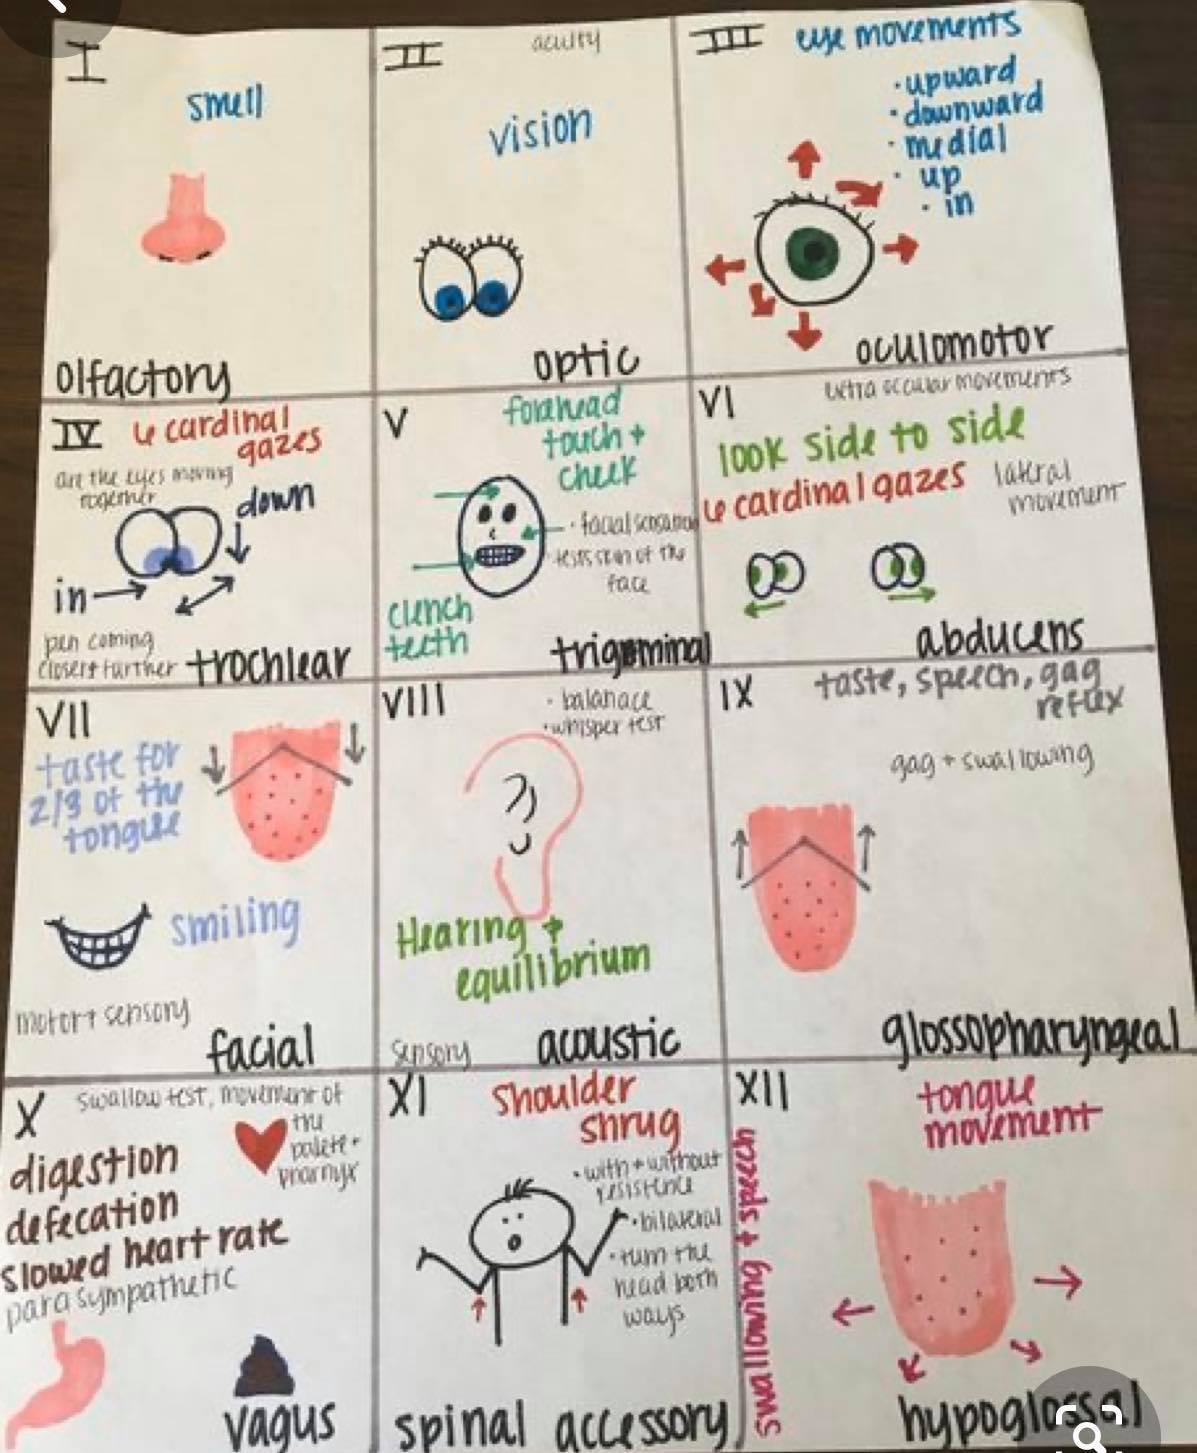 I
smell
olfactory
II
acuity
vision
optic
III
eye movements
· upward
· downward
· medial
· up
· in
oculomotor
IV
6 cardinal
gazes
are the eyes moving
together
down
in
pen coming
closer + further
trochlear
V
forehead
touch +
cheek
· facial sensation
· tests skin of the
face
clench
teeth
trigeminal
VI
extra occular movements
look side to side
6 cardinal gazes
lateral
movement
abducens
VII
taste for
2/3 of the
tongue
smiling
motor + sensory
facial
VIII
· balanace
· whisper test
Hearing +
equilibrium
sensory
acoustic
IX
taste, speech, gag
reflex
gag + swallowing
glossopharyngeal
X
swallow test, movement of
the
palete +
pharnyx
digestion
defecation
slowed heart rate
parasympathetic
vagus
XI
shoulder
shrug
· with + without
resistence
· bilateral
· turn the
head both
ways
spinal accessory
XII
tongue
movement
swallowing + speech
hypoglossal